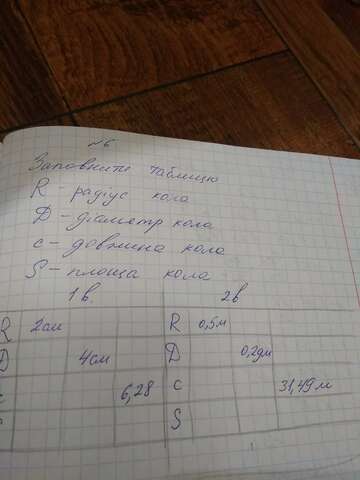 №6
Заповнити таблицю
R - радіус кола
D - діаметр кола
c - довжина кола
S - площа кола
1в 2в
R 2см R 0,5м
D 4см D 0,2дм
c 6,28 c 31,49м
S